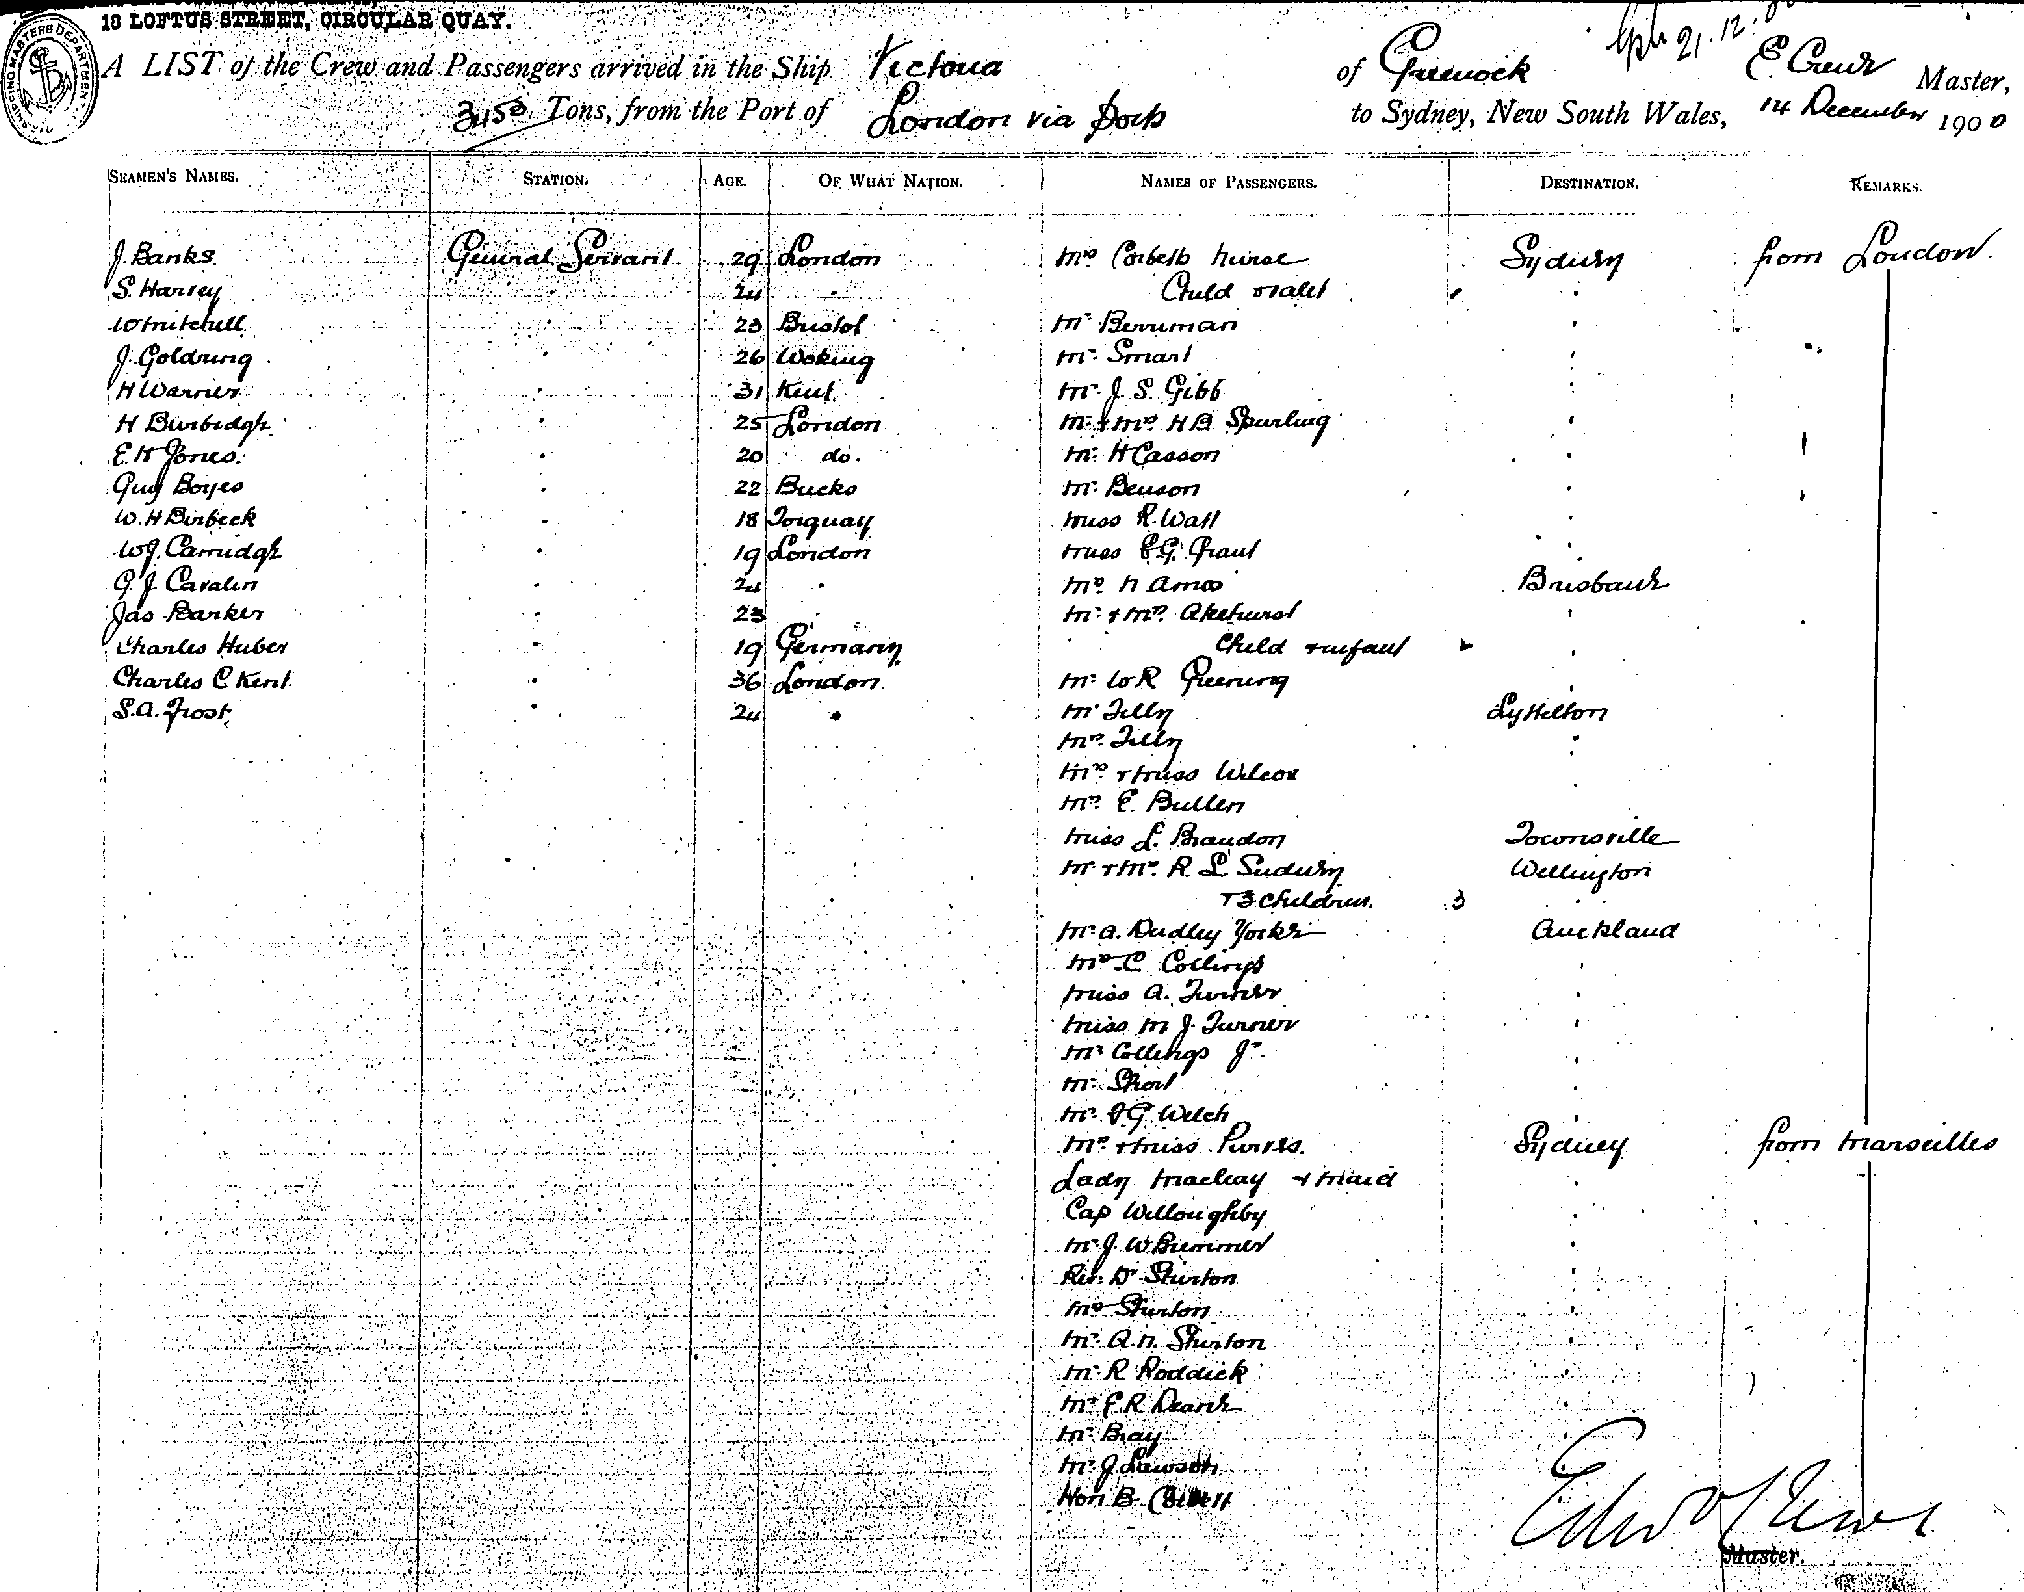 18 LOFTUS STREET, CIRCULAR QUAY.
21.12.
A LIST of the Crew and Passengers arrived in the Ship Victoria of Greenock E. Crewe Master,
3450 Tons, from the Port of London via Ports to Sydney, New South Wales, 14 December 1900
SEAMEN'S NAMES. STATION. AGE. OF WHAT NATION. NAMES OF PASSENGERS. DESTINATION. REMARKS.
J. Banks General Servant 29 London Mrs Corbett nurse Sydney from London.
S. Harvey " 24 " Child & valet "
W Mitchell " 23 Bristol Mr Berriman "
J. Goldring " 26 Woking Mr. Smart "
H Warner " 31 Kent Mr J. S. Gibb "
H Burbidge " 25 London Mr & Mrs H B Spurling "
E. H Jones " 20 do. Mr H Casson "
Guy Boyes " 22 Bucks Mr Benson "
W. H Birbeck " 18 Torquay Miss R. Watt "
W J. Carridge " 19 London Miss E. G. Grant "
G. J Cavalin " 24 " Mrs N Amos Brisbane
Jas Barker " 23 Mr & Mrs Akehurst "
Charles Huber " 19 Germany Child & infant "
Charles C Kent " 36 London Mr W R Greening "
S. A. Frost " 24 " Mr Tilly Lyttelton
Mrs Tilly "
Mrs & Miss Wilcox
Mrs E. Bullen
Miss L. Brandon Townsville
Mr & Mrs R. L Wellington
& 3 children. 3 "
Mr A. Dudley Yorke Auckland
Mrs C Collings "
Miss A. Turner "
Miss M J. Turner "
Mr Collings Jr. "
Mr Short "
Mr G Welch "
Mrs & Miss Purves. Sydney from Marseilles
Lady Macleay & Maid "
Cap Willoughby "
Mr J. W Brimmer "
Rev. Dr Sturton "
Mrs Sturton "
Mr A. N. Sturton "
Mr R Roddick "
Mr E. R Deane
Mr Bray
Mr J Lawson
Hon B
Edwd Crewe
Master.